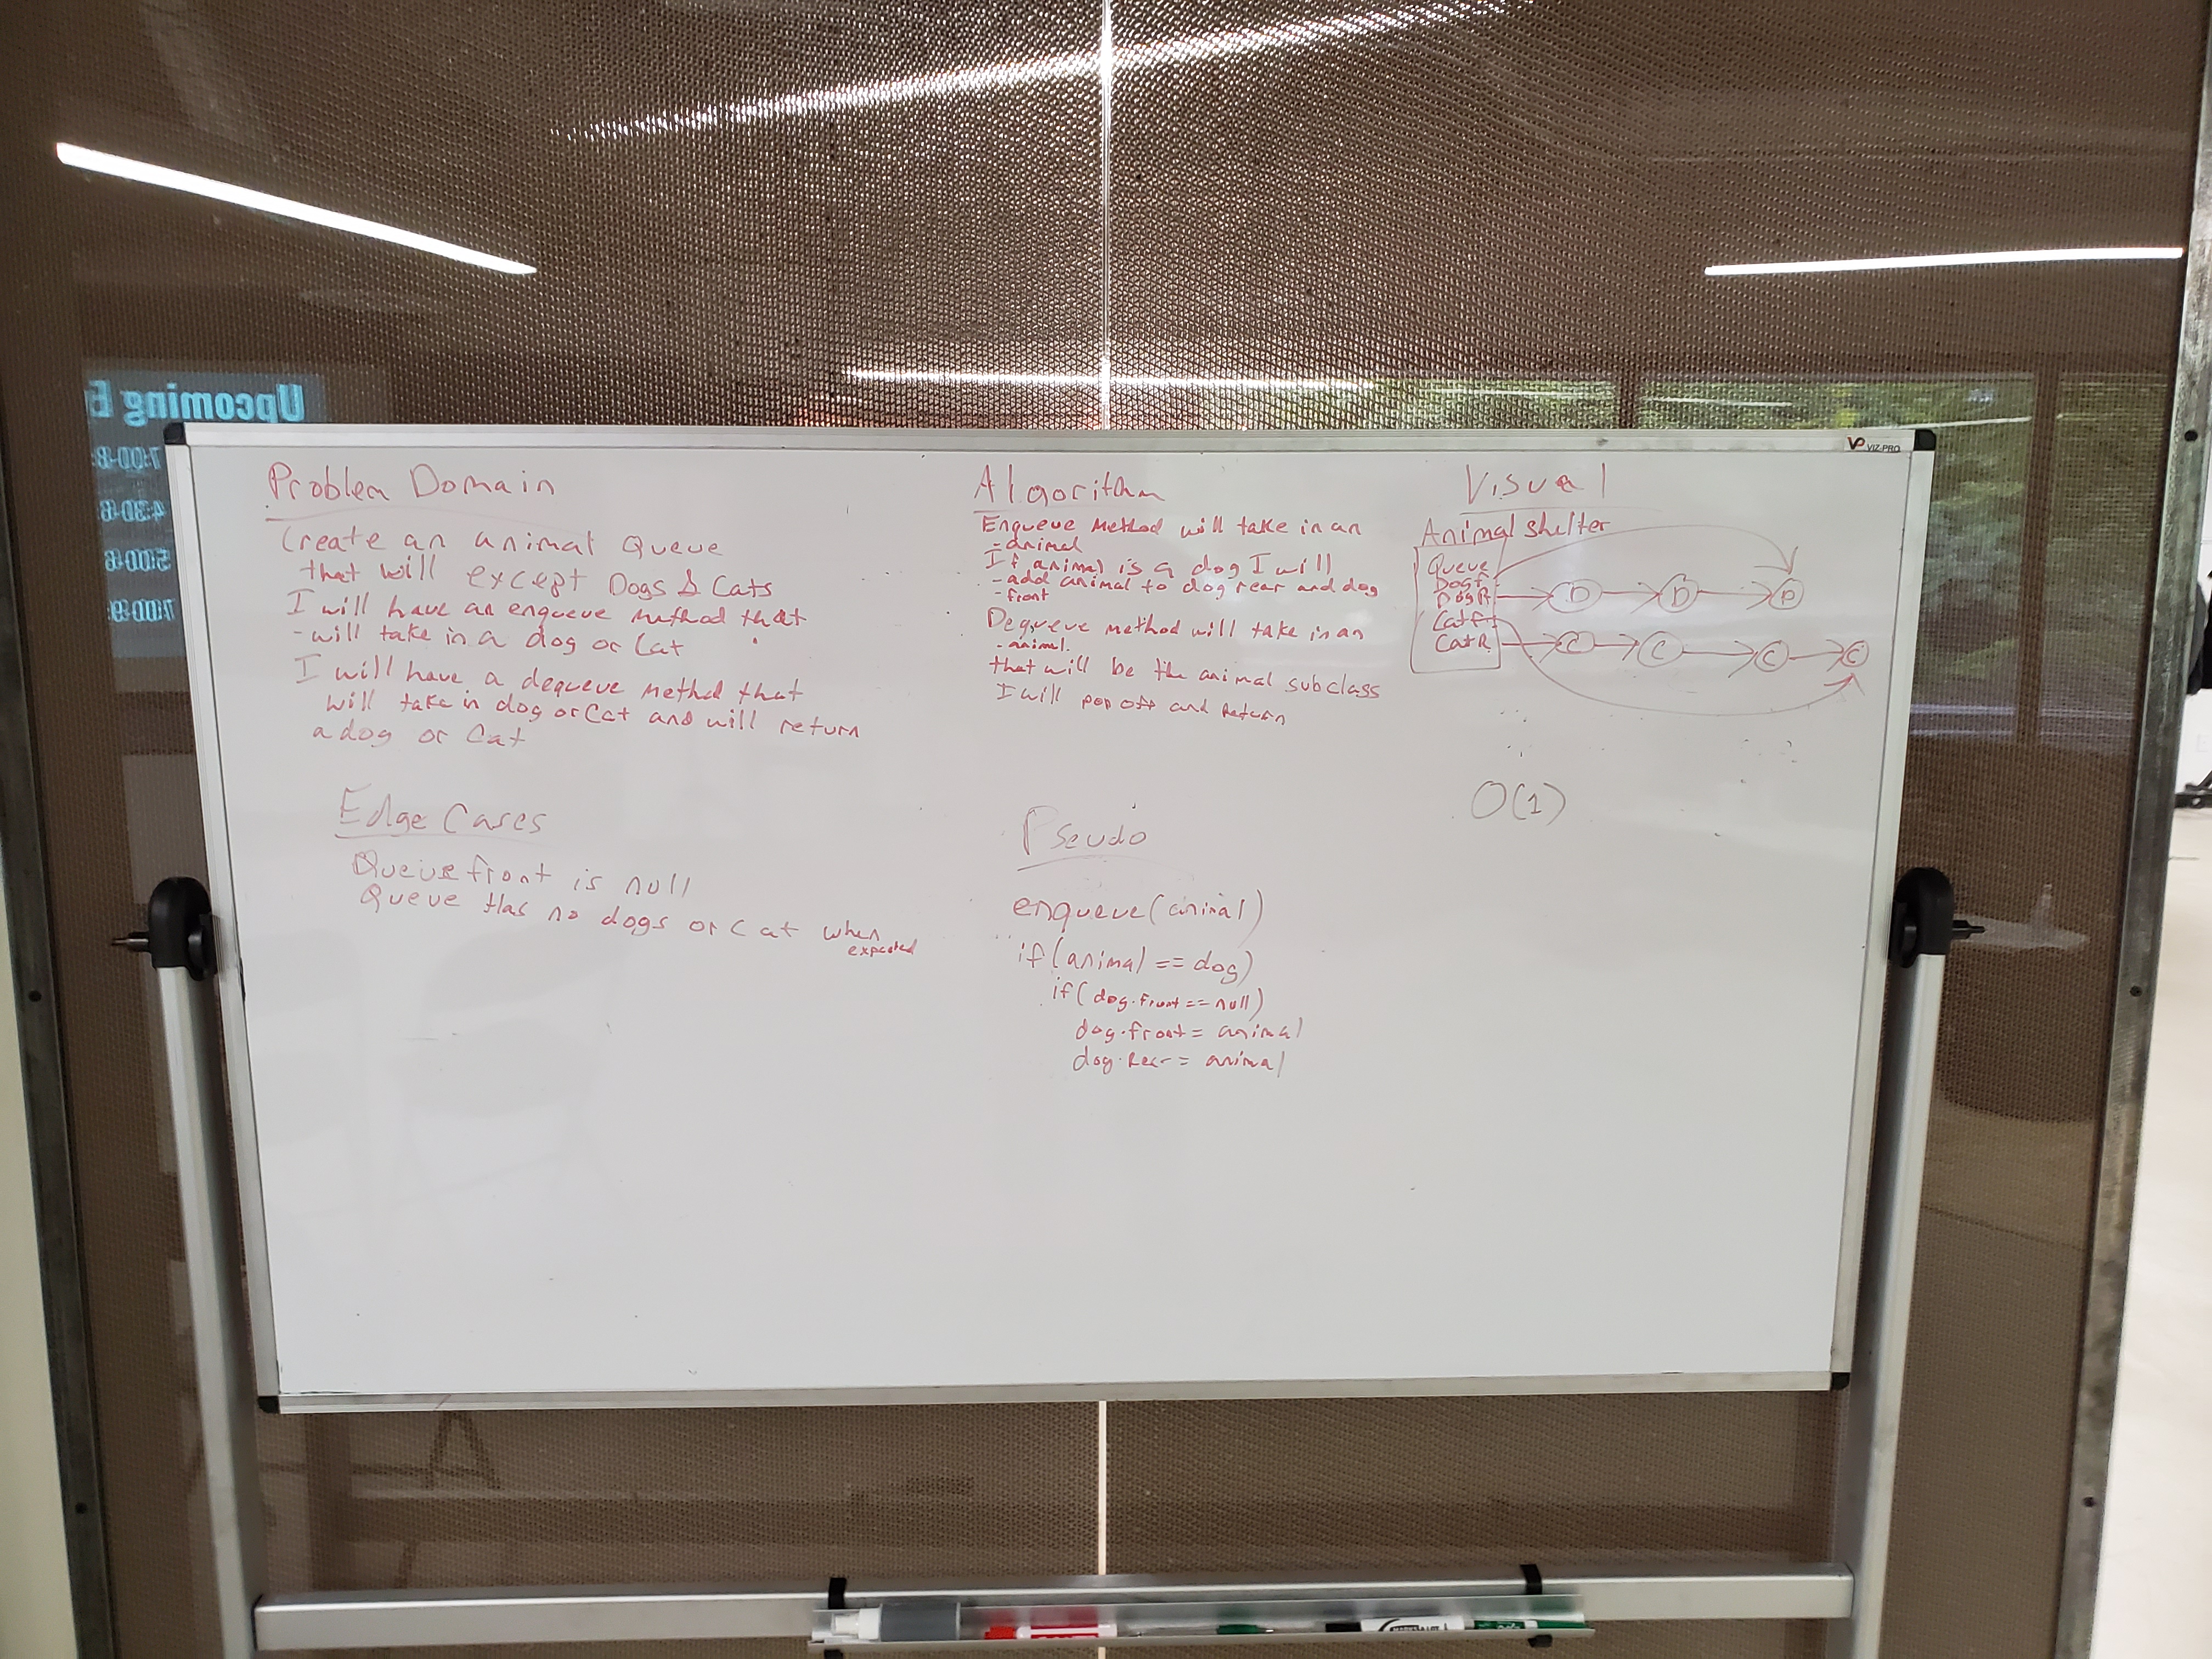 Upcoming E
7:00-8:
4:30-6
5:00-6
7:00-9:
VP VIZ-PRO
Problem Domain
Create an animal Queue
that will except Dogs & Cats
I will have an enqueue method that
- will take in a dog or Cat
I will have a dequeue method that
will take in dog or Cat and will return
a dog or Cat
Edge Cases
Queue front is null
Queue Has no dogs or Cat when
expected
Algorithm
Enqueue Method will take in an
- animal
If animal is a dog I will
- add animal to dog rear and dog
- front
Dequeue method will take in an
- animal.
that will be the animal subclass
I will pop off and Return
Pseudo
enqueue(animal)
if(animal == dog)
if(dog.front == null)
dog.front = animal
dog.Rear = animal
Visual
Animal shelter
Queue
DogF
DogR
CatF
CatR
D D D
C C C C
O(1)